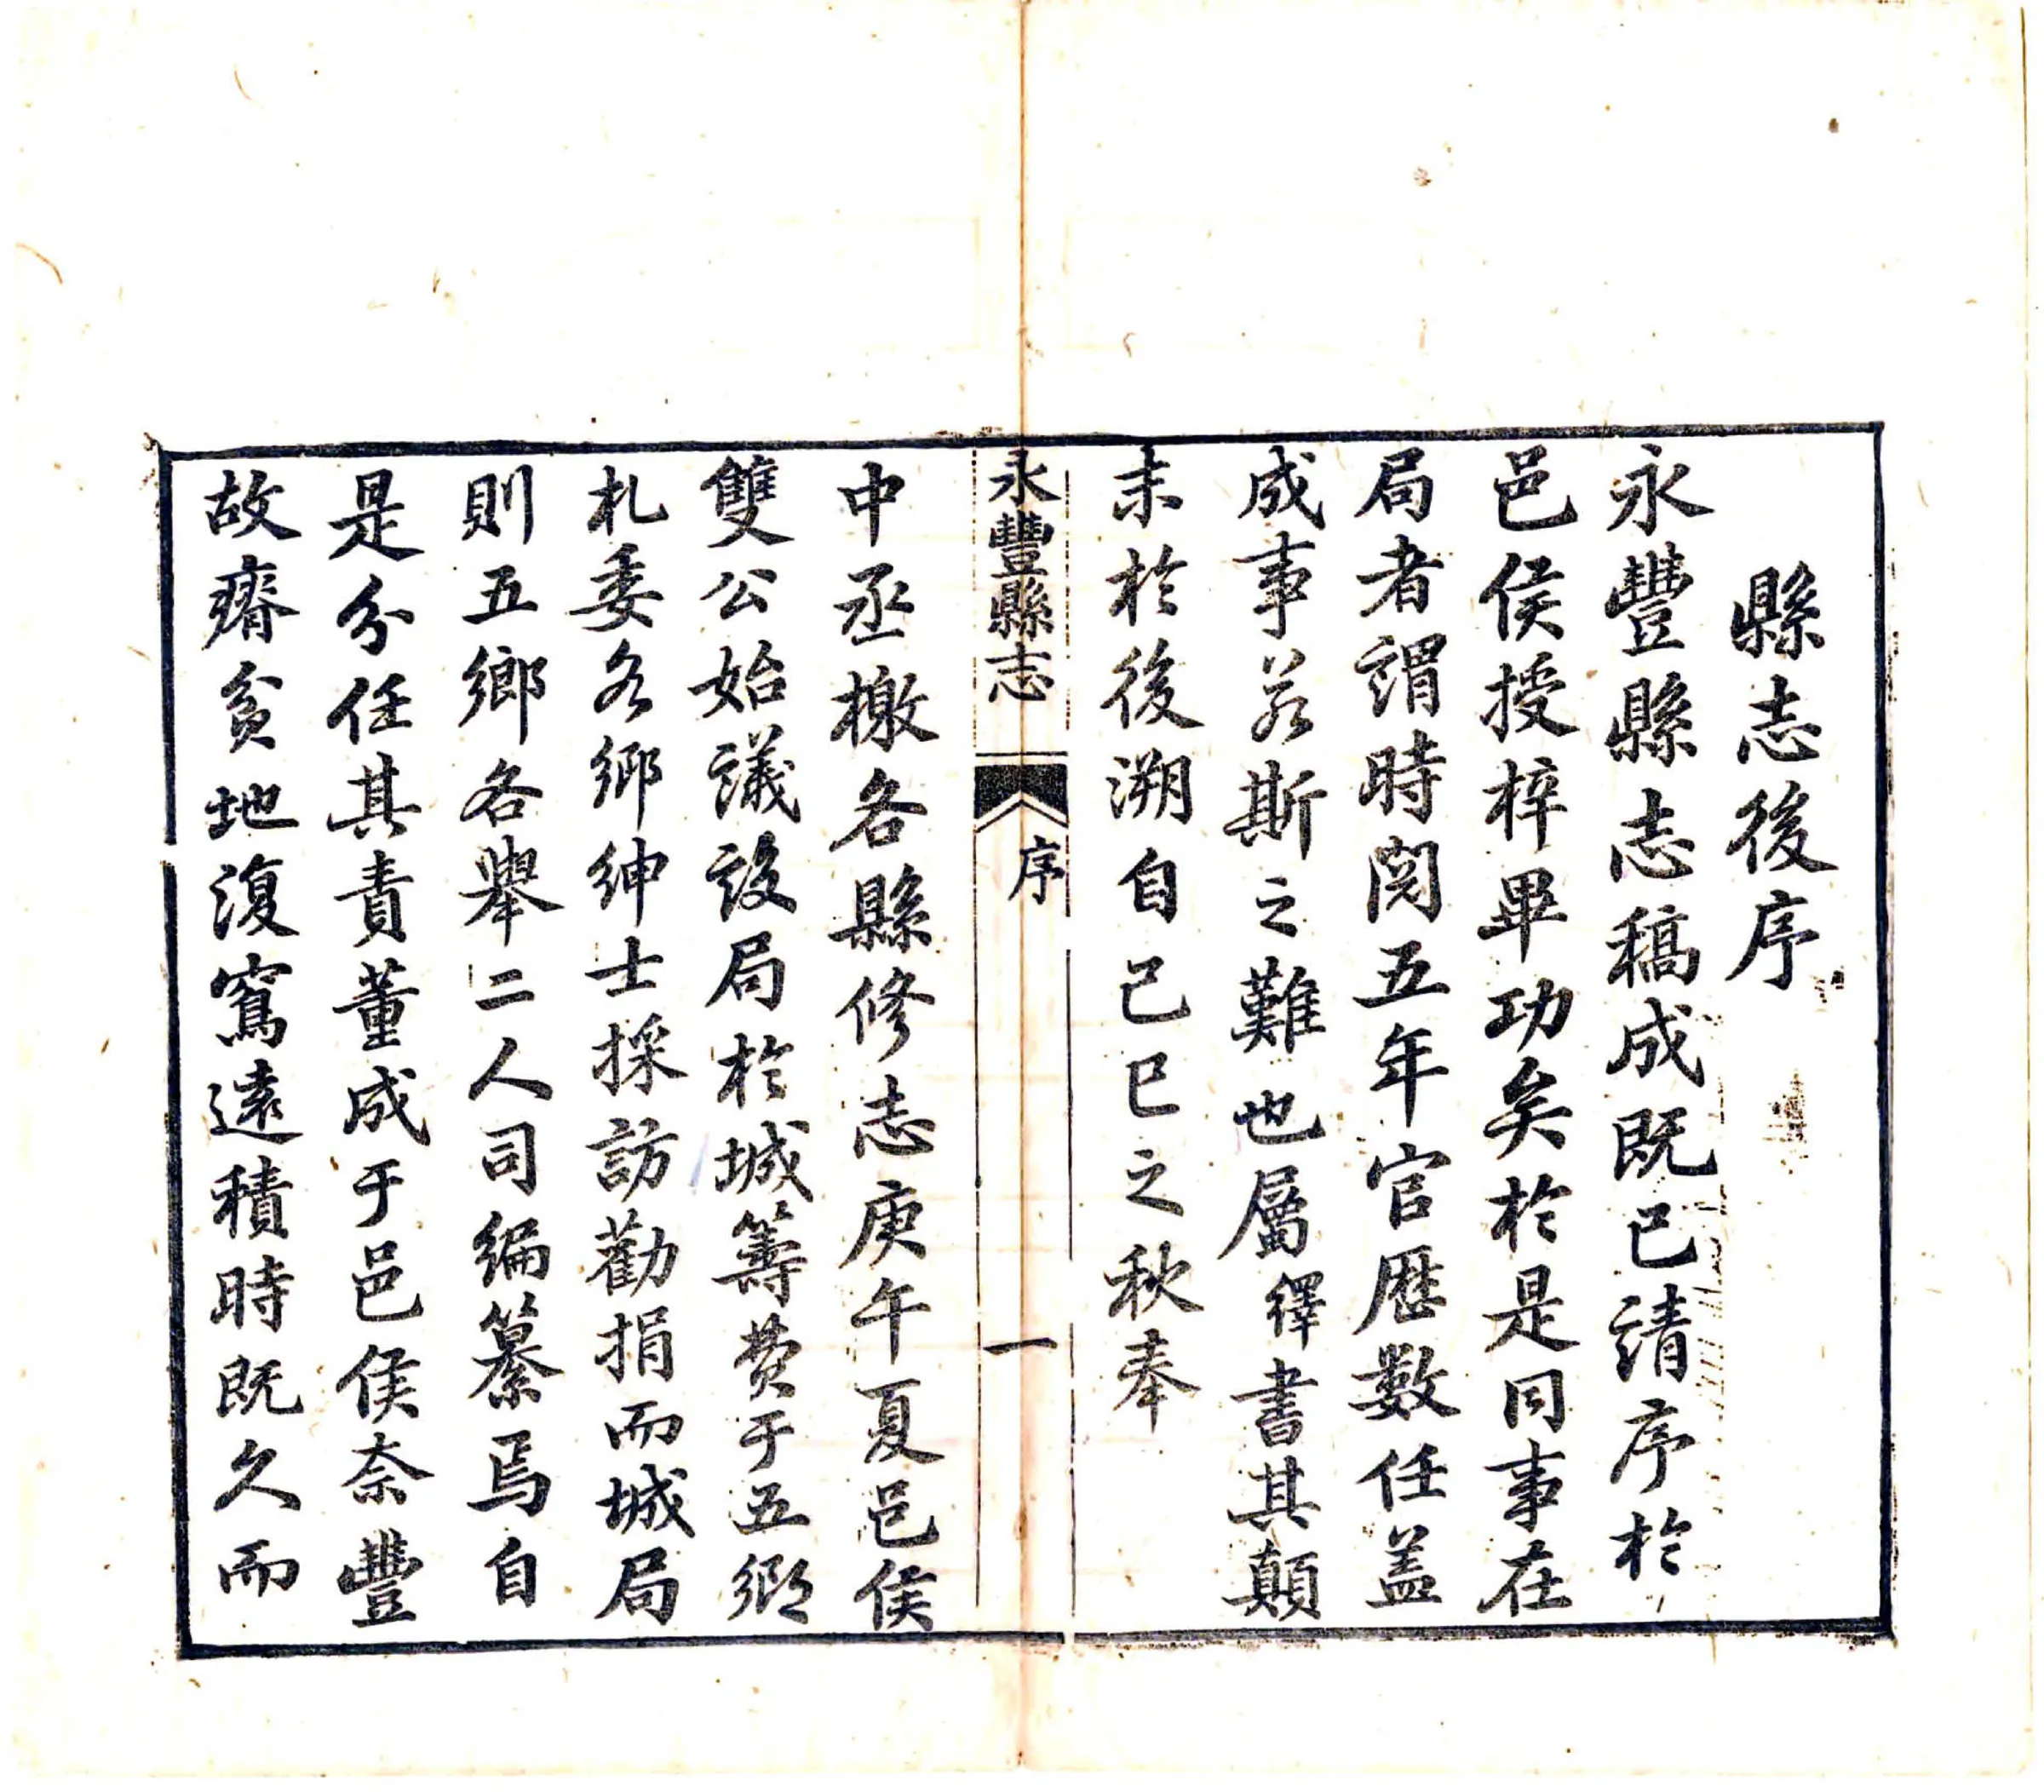 縣志後序
永豐縣志稿成既已請序於
邑侯授梓畢功矣於是同事在
局者謂時閱五年官歷數任蓋
成事若斯之難也屬繹書其顛
末於後溯自己巳之秋奉
永豐縣志
序
一
中丞檄各縣修志庚午夏邑侯
雙公始議設局於城籌費于五鄉
札委各鄉紳士採訪勸捐而城局
則五鄉各舉二人司編纂焉自
是分任其責董成于邑侯奈豐
故瘠貧地復寫遠積時既久而